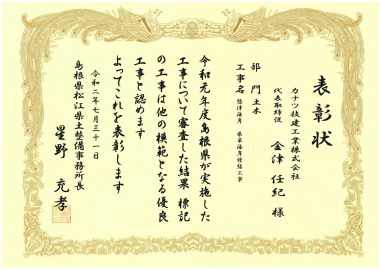 表彰状
カナツ技建工業株式会社
代表取締役 金津 任紀 様
部門 土木
工事名
令和元年度島根県が実施した
工事について審査した結果 標記
の工事は他の模範となる優良
工事と認めます
よってこれを表彰します
令和二年七月三十一日
島根県松江県土整備事務所長
星野 充孝